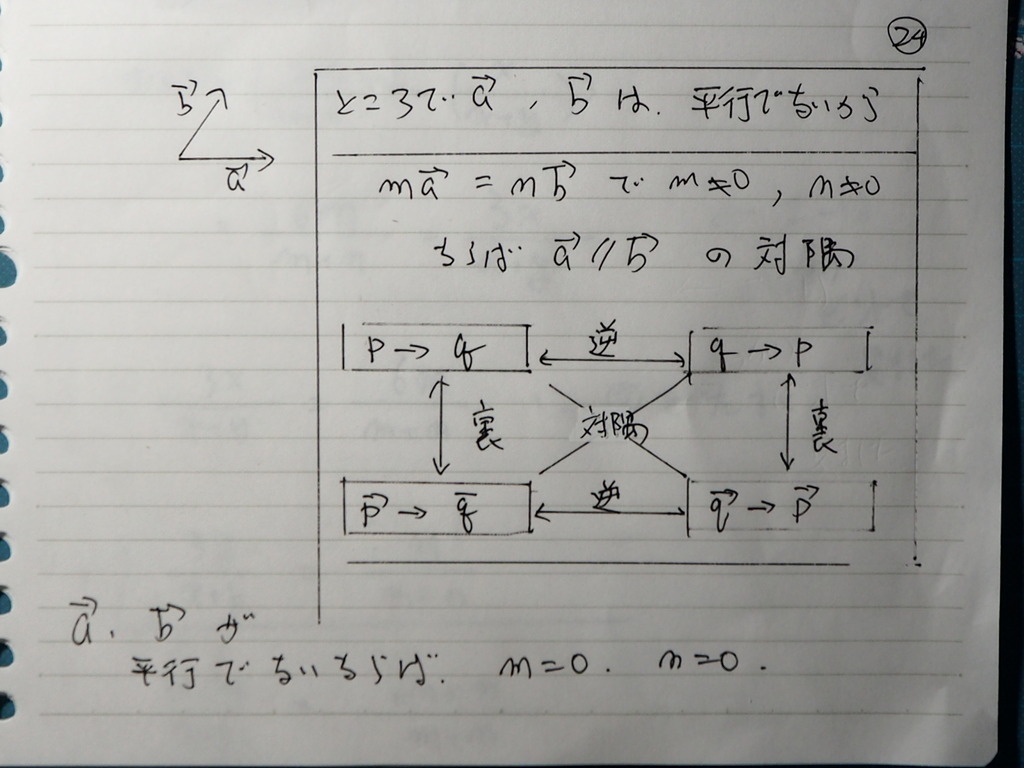 24
b⃗
a⃗
ところで a⃗, b⃗ は. 平行でないから
ma⃗ = nb⃗ で m≠0, n≠0
ならば a⃗ // b⃗ の対隅
p → q 逆 q → p
裏 対隅 裏
p⃗ → q̄ 逆 q⃗ → p⃗
a⃗. b⃗ が
平行でないならば. m=0. n=0.